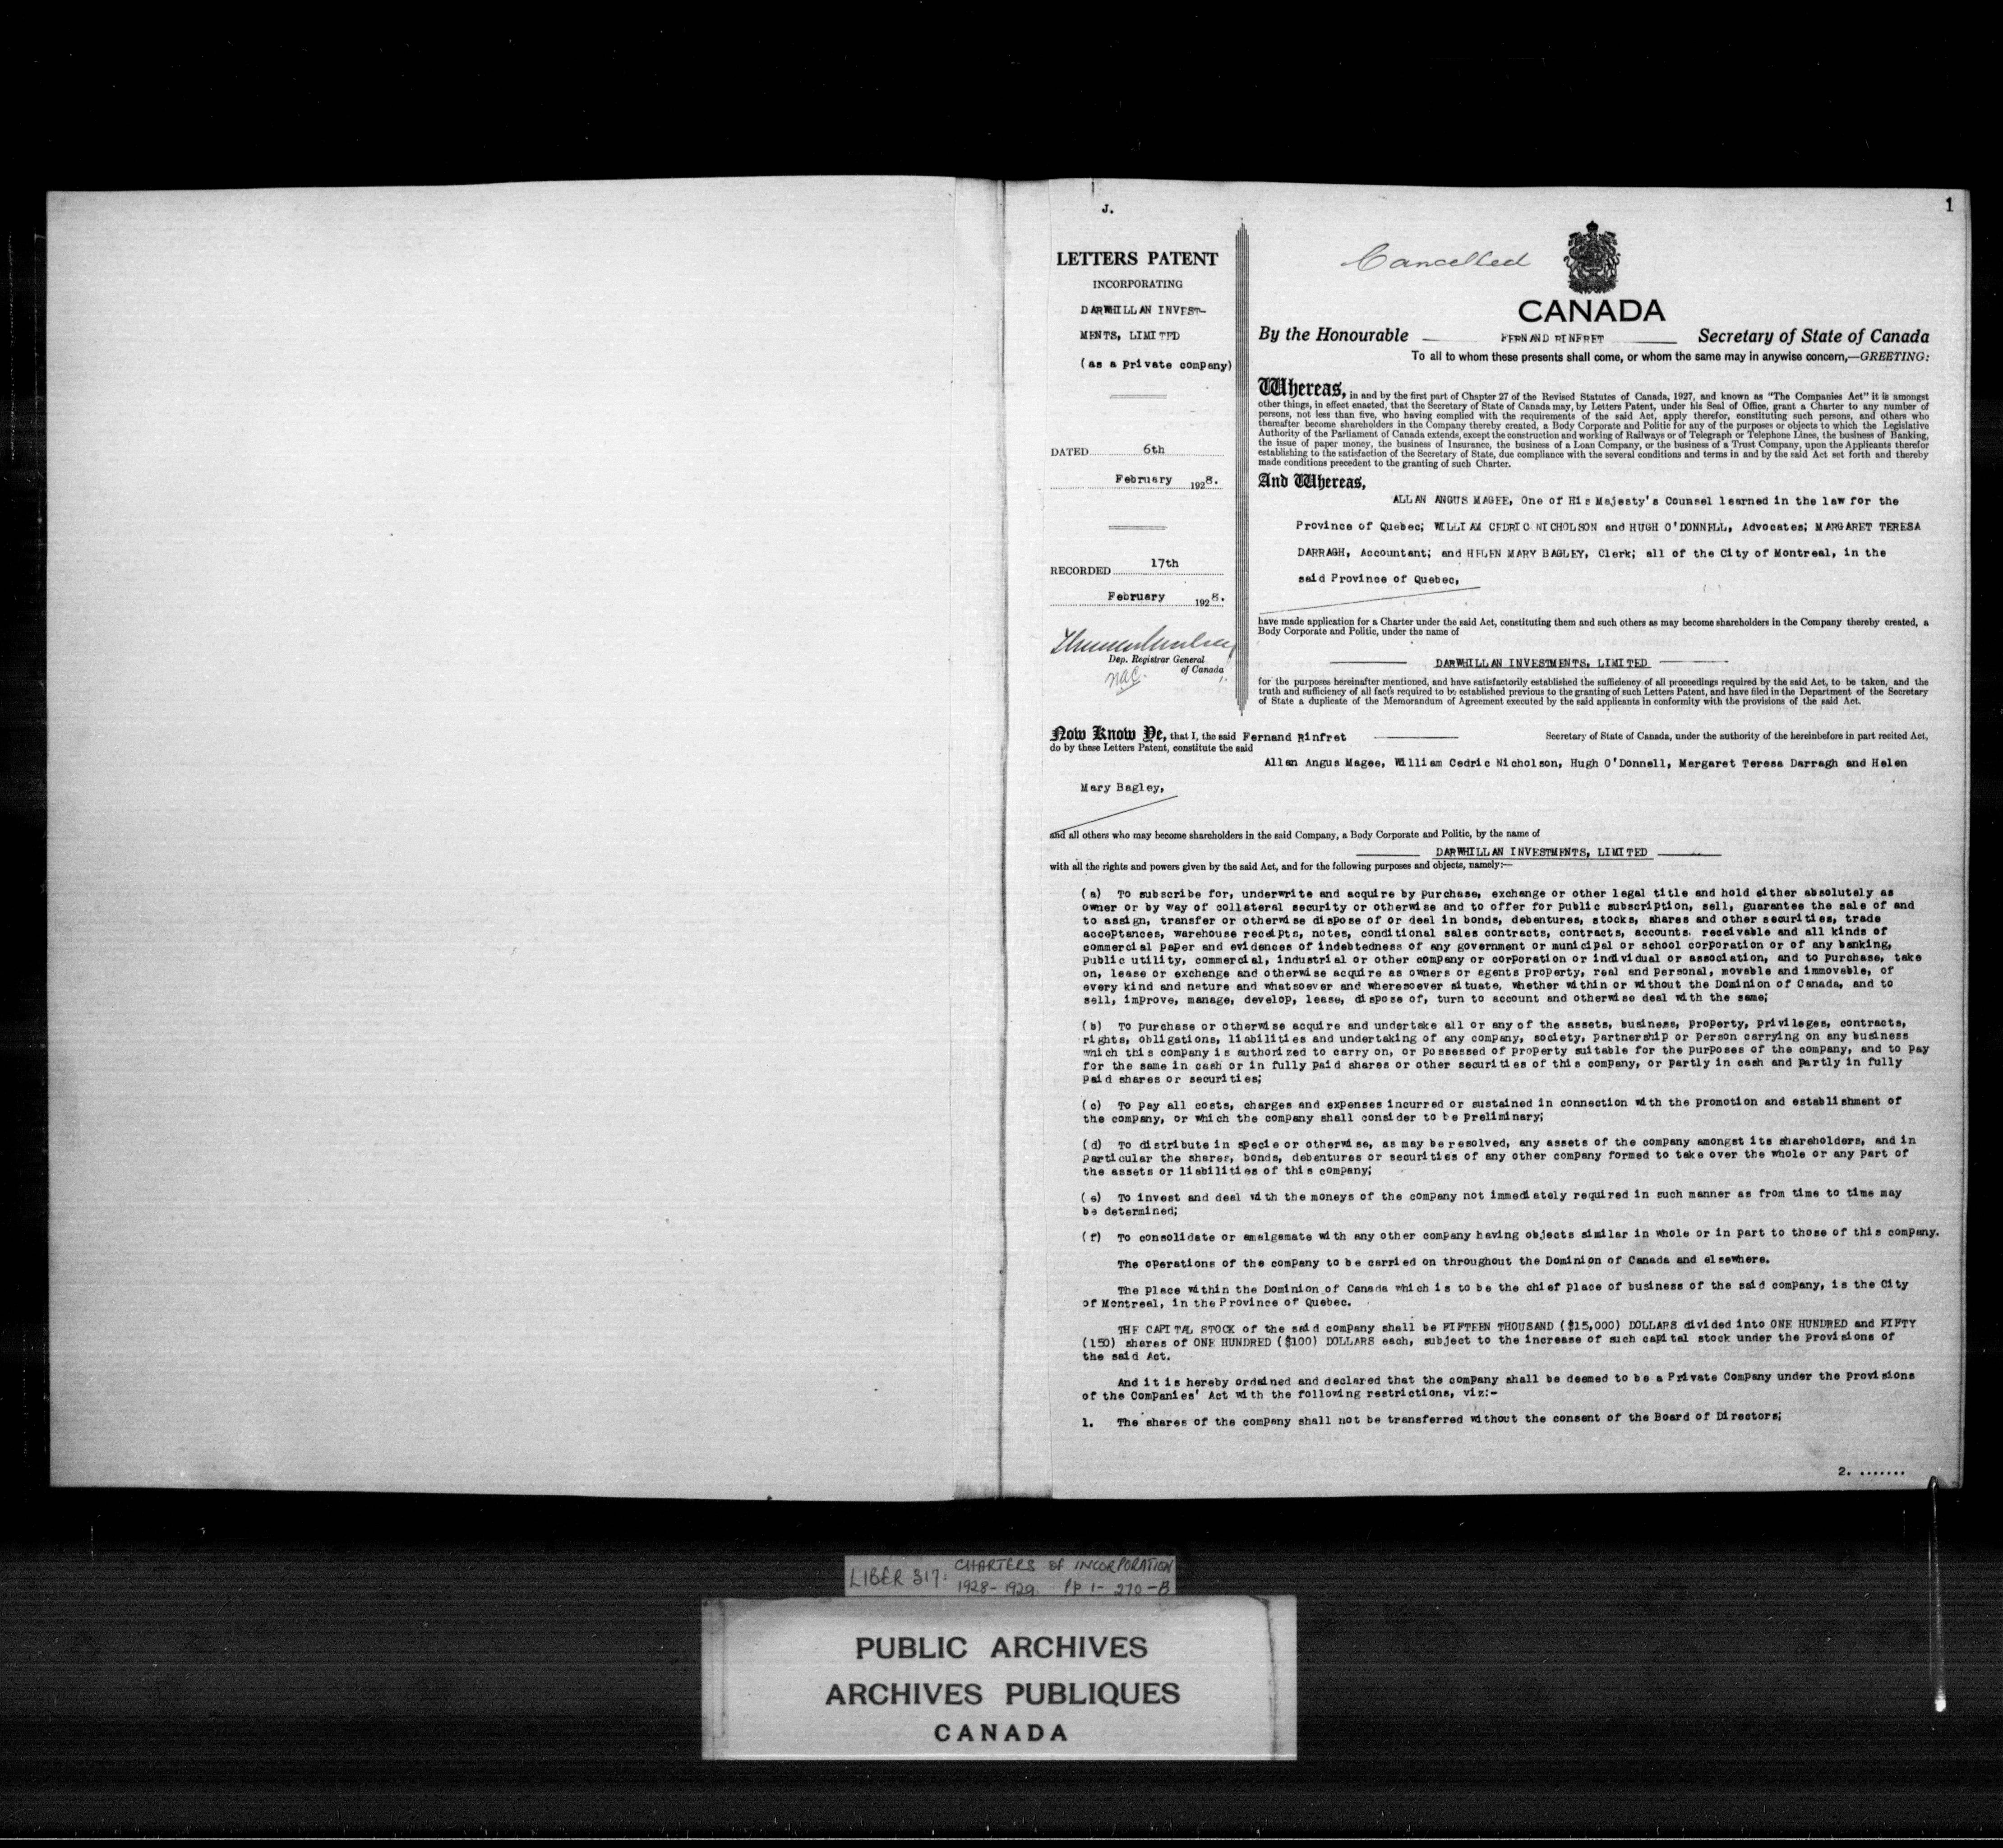 J.
1
LETTERS PATENT
INCORPORATING
DARWHILLAN INVEST-
MENTS, LIMITED
(as a private company)
DATED 6th
February 1928.
RECORDED 17th
February 1928.
Dep. Registrar General
of Canada
Cancelled
CANADA
By the Honourable FERNAND RINFRET Secretary of State of Canada
To all to whom these presents shall come, or whom the same may in anywise concern,—GREETING:
Whereas, in and by the first part of Chapter 27 of the Revised Statutes of Canada, 1927, and known as "The Companies Act" it is amongst
other things, in effect enacted, that the Secretary of State of Canada may, by Letters Patent, under his Seal of Office, grant a Charter to any number of
persons, not less than five, who having complied with the requirements of the said Act, apply therefor, constituting such persons, and others who
thereafter become shareholders in the Company thereby created, a Body Corporate and Politic for any of the purposes or objects to which the Legislative
Authority of the Parliament of Canada extends, except the construction and working of Railways or of Telegraph or Telephone Lines, the business of Banking,
the issue of paper money, the business of Insurance, the business of a Loan Company, or the business of a Trust Company, upon the Applicants therefor
establishing to the satisfaction of the Secretary of State, due compliance with the several conditions and terms in and by the said Act set forth and thereby
made conditions precedent to the granting of such Charter.
And Whereas,
ALLAN ANGUS MAGEE, One of His Majesty's Counsel learned in the law for the
Province of Quebec; WILLIAM CEDRIC NICHOLSON and HUGH O'DONNELL, Advocates; MARGARET TERESA
DARRAGH, Accountant; and HELEN MARY BAGLEY, Clerk; all of the City of Montreal, in the
said Province of Quebec,
have made application for a Charter under the said Act, constituting them and such others as may become shareholders in the Company thereby created, a
Body Corporate and Politic, under the name of
DARWHILLAN INVESTMENTS, LIMITED
for the purposes hereinafter mentioned, and have satisfactorily established the sufficiency of all proceedings required by the said Act, to be taken, and the
truth and sufficiency of all facts required to be established previous to the granting of such Letters Patent, and have filed in the Department of the Secretary
of State a duplicate of the Memorandum of Agreement executed by the said applicants in conformity with the provisions of the said Act.
Now Know Ye, that I, the said Fernand Rinfret Secretary of State of Canada, under the authority of the hereinbefore in part recited Act,
do by these Letters Patent, constitute the said
Allan Angus Magee, William Cedric Nicholson, Hugh O'Donnell, Margaret Teresa Darragh and Helen
Mary Bagley,
and all others who may become shareholders in the said Company, a Body Corporate and Politic, by the name of
DARWHILLAN INVESTMENTS, LIMITED
with all the rights and powers given by the said Act, and for the following purposes and objects, namely:—
(a) To subscribe for, underwrite and acquire by purchase, exchange or other legal title and hold either absolutely as
owner or by way of collateral security or otherwise and to offer for public subscription, sell, guarantee the sale of and
to assign, transfer or otherwise dispose of or deal in bonds, debentures, stocks, shares and other securities, trade
acceptances, warehouse receipts, notes, conditional sales contracts, contracts, accounts. receivable and all kinds of
commercial paper and evidences of indebtedness of any government or municipal or school corporation or of any banking,
public utility, commercial, industrial or other company or corporation or individual or association, and to purchase, take
on, lease or exchange and otherwise acquire as owners or agents property, real and personal, movable and immovable, of
every kind and nature and whatsoever and wheresoever situate, whether within or without the Dominion of Canada, and to
sell, improve, manage, develop, lease, dispose of, turn to account and otherwise deal with the same;
(b) To purchase or otherwise acquire and undertake all or any of the assets, business, property, privileges, contracts,
rights, obligations, liabilities and undertaking of any company, society, partnership or person carrying on any business
which this company is authorized to carry on, or possessed of property suitable for the purposes of the company, and to pay
for the same in cash or in fully paid shares or other securities of this company, or partly in cash and partly in fully
paid shares or securities;
(c) To pay all costs, charges and expenses incurred or sustained in connection with the promotion and establishment of
the company, or which the company shall consider to be preliminary;
(d) To distribute in specie or otherwise, as may be resolved, any assets of the company amongst its shareholders, and in
particular the shares, bonds, debentures or securities of any other company formed to take over the whole or any part of
the assets or liabilities of this company;
(e) To invest and deal with the moneys of the company not immediately required in such manner as from time to time may
be determined;
(f) To consolidate or amalgamate with any other company having objects similar in whole or in part to those of this company.
The operations of the company to be carried on throughout the Dominion of Canada and elsewhere.
The place within the Dominion of Canada which is to be the chief place of business of the said company, is the City
of Montreal, in the Province of Quebec.
THE CAPITAL STOCK of the said company shall be FIFTEEN THOUSAND ($15,000) DOLLARS divided into ONE HUNDRED and FIFTY
(150) shares of ONE HUNDRED ($100) DOLLARS each, subject to the increase of such capital stock under the provisions of
the said Act.
And it is hereby ordained and declared that the company shall be deemed to be a Private Company under the provisions
of the Companies' Act with the following restrictions, viz:-
1. The shares of the company shall not be transferred without the consent of the Board of Directors;
2. .......
LIBER 317: CHARTERS of INCORPORATION
1928-1929. Pp 1-270-B
PUBLIC ARCHIVES
ARCHIVES PUBLIQUES
CANADA